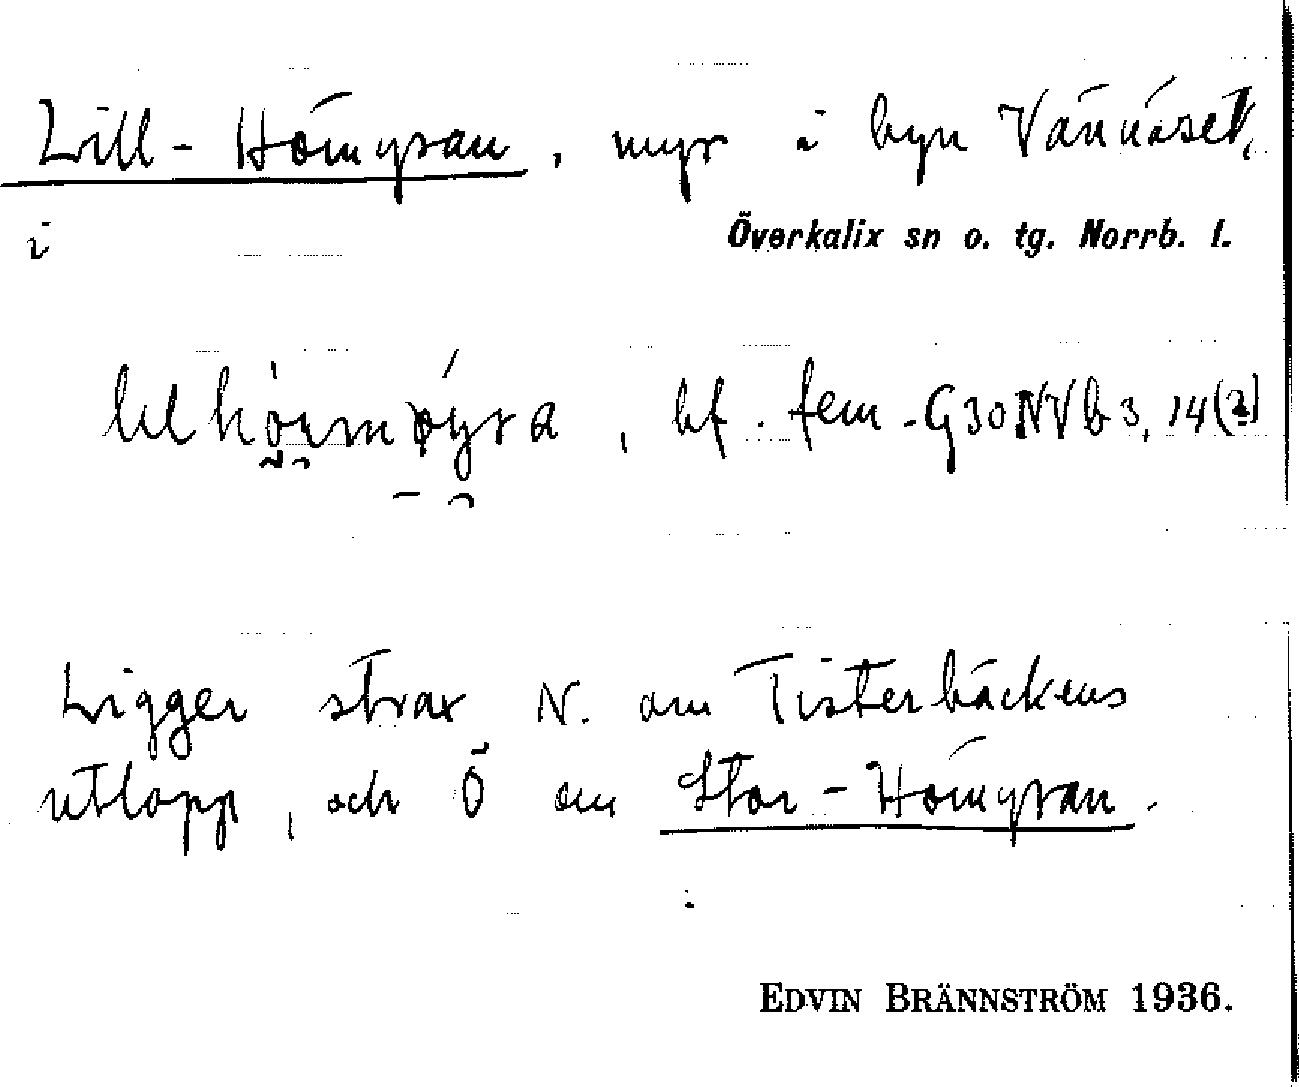 Lill-Hömyran, myr i byn Vännäset,
i Överkalix sn o. tg. Norrb. l.
bf. fem. G30NVb3, 14(2)
Ligger strax N. om Tisterbäckens
utlopp, och Ö om Stor-Hömyran.
EDVIN BRÄNNSTRÖM 1936.